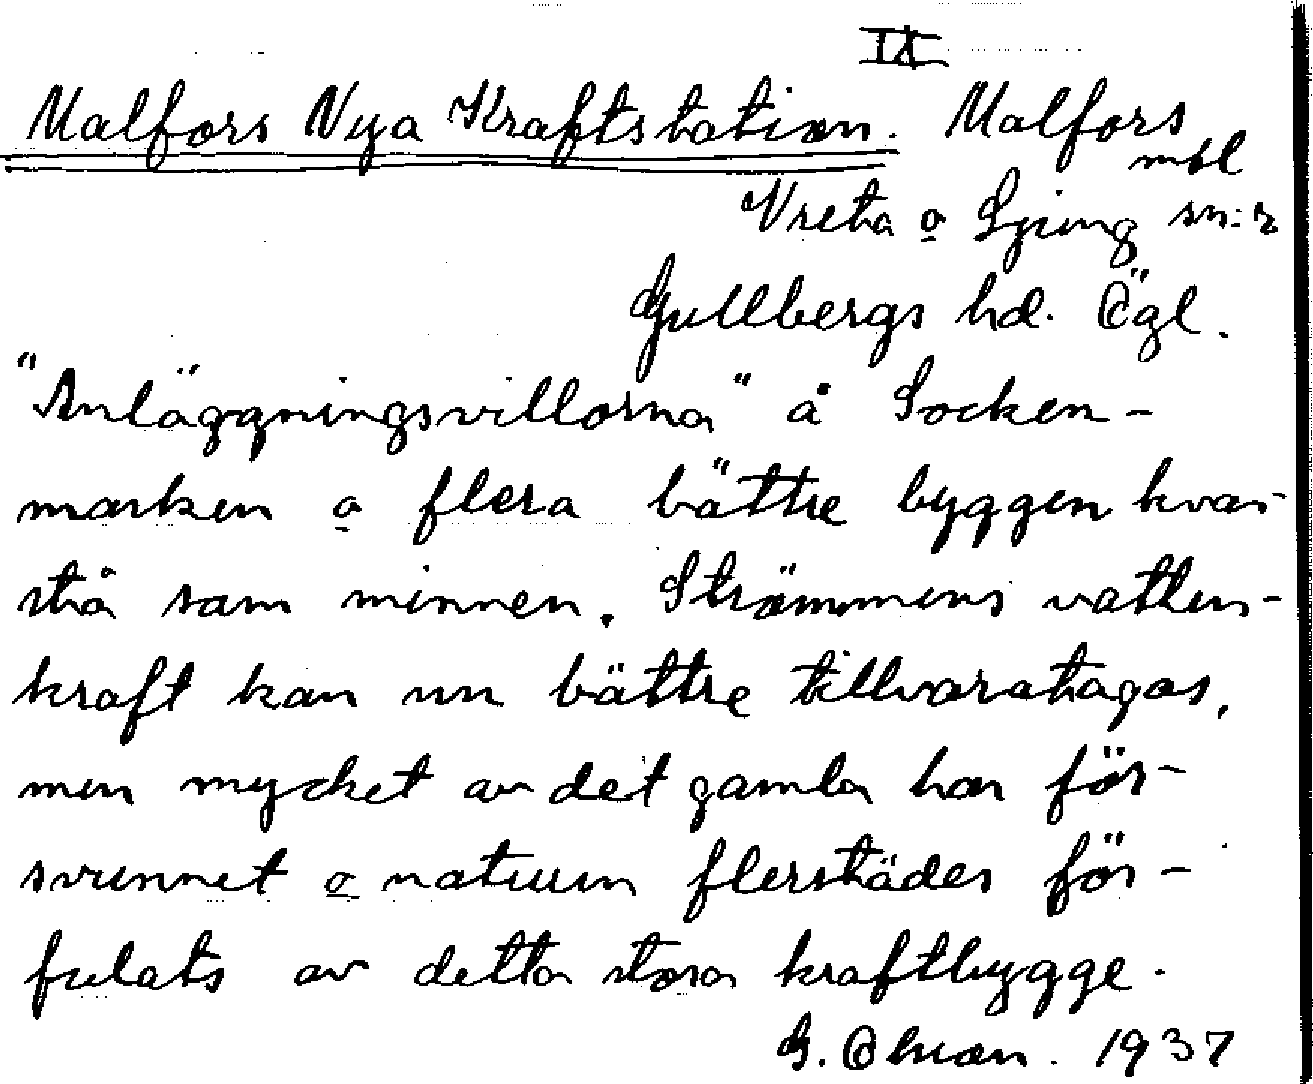 IX
Malfors Nya Kraftstation. Malfors
mbl
Vreta o Ljung sn:r
Gullbergs hd. Ögl.
"Anläggningsvillorna" å Socken-
marken o flera bättre byggen kvar-
stå som minnen. Strömmens vatten-
kraft kan nu bättre tillvaratagas,
men mycket av det gamla har för-
svunnet o naturen flerstädes för-
fulats av detta stora kraftbygge.
G. Ohman. 1937